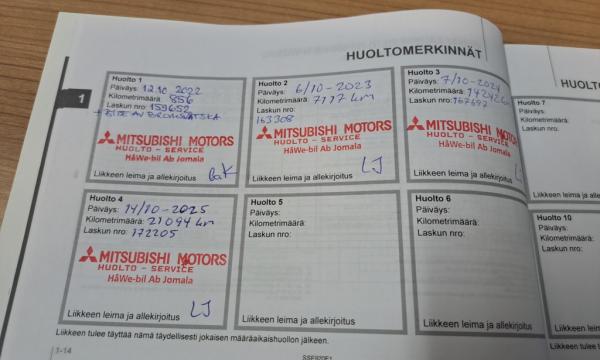 HUOLTOMERKINNÄT
1
Huolto 1
Päiväys: 12.10 2022
Kilometrimäärä: 856
Laskun nro: 159652
MITSUBISHI MOTORS
HUOLTO - SERVICE
HåWe-bil Ab Jomala
Liikkeen leima ja allekirjoitus
Huolto 2
Päiväys: 6/10 - 2023
Kilometrimäärä: 7117 km
Laskun nro:
163308
MITSUBISHI MOTORS
HUOLTO - SERVICE
HåWe-bil Ab Jomala
Liikkeen leima ja allekirjoitus LJ
Huolto 3
Päiväys: 7/10 - 2024
Kilometrimäärä:
Laskun nro: 167697
MITSUBISHI MOTORS
HUOLTO - SERVICE
HåWe-bil Ab Jomala
Liikkeen leima ja allekirjoitus LJ
Huolto 4
Päiväys: 14/10 - 2025
Kilometrimäärä: 21094 km
Laskun nro: 172205
MITSUBISHI MOTORS
HUOLTO - SERVICE
HåWe-bil Ab Jomala
Liikkeen leima ja allekirjoitus LJ
Huolto 5
Päiväys:
Kilometrimäärä:
Laskun nro:
Liikkeen leima ja allekirjoitus
Huolto 6
Päiväys:
Kilometrimäärä:
Laskun nro:
Liikkeen leima ja allekirjoitus
Liikkeen tulee täyttää nämä täydellisesti jokaisen määräaikaishuollon jälkeen.
1-14
Huolto 7
Päiväys:
Kilometrimäärä:
Laskun nro:
Liikkeen leima ja
Huolto 10
Päiväys:
Kilometrimäärä:
Laskun nro:
Liikkeen leima ja